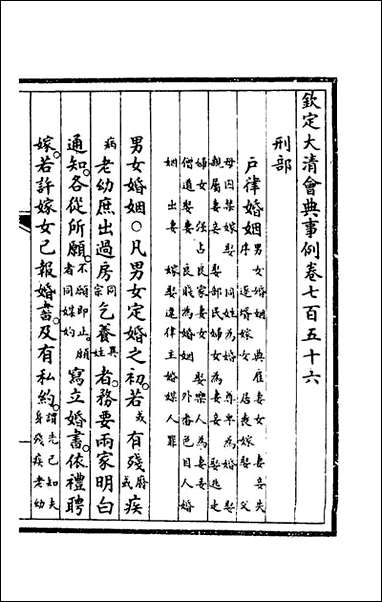 欽定大清會典事例卷七百五十六
刑部
戶律婚姻男女婚姻 典雇妻女 妻妾失
序 逐壻嫁女 居喪嫁娶 父
母囚禁嫁娶 同姓為婚 尊卑為婚 娶
親屬妻妾 娶部民婦女為妻妾 娶逃走
婦女 強占良家妻女 娶樂人為妻妾
僧道娶妻 良賤為婚姻 外番色目人婚
姻 出妻 嫁娶違律主婚媒人罪
男女婚姻○凡男女定婚之初若或有殘廢疾或
病老幼庶出過房同宗乞養異姓者務要兩家明白
通知各從所願不願即止願者同媒妁寫立婚書依禮聘
嫁若許嫁女已報婚書及有私約謂先已知夫身殘疾老幼